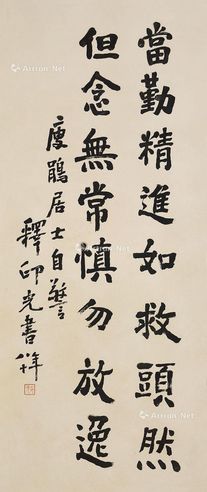 當勤精進如救頭然
但念無常慎勿放逸
慶鵑居士自警
釋印光書
Artron.Net